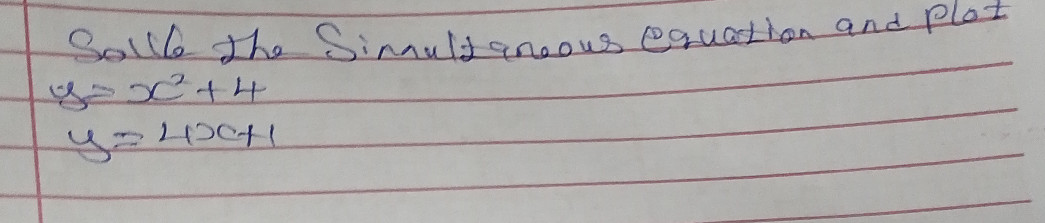 Solve the Simultaneous equation and plot
y = x² + 4
y = 4x+1